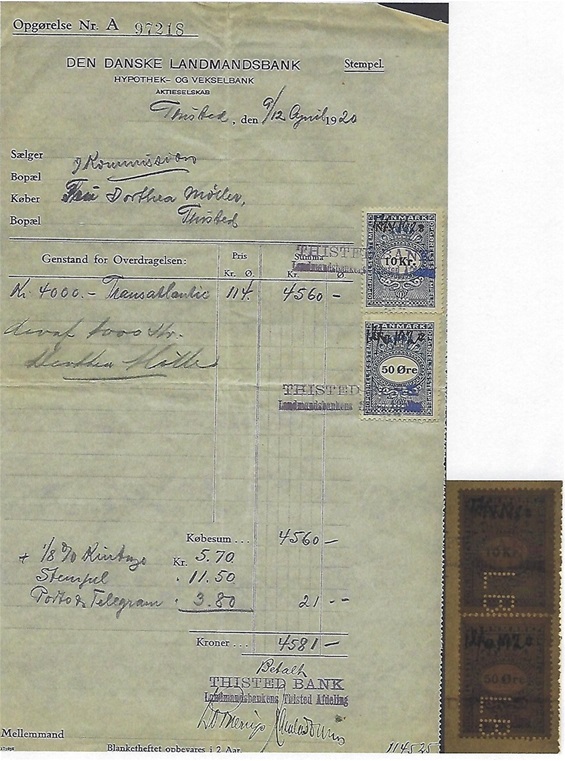 Opgørelse Nr. A 97218
DEN DANSKE LANDMANDSBANK
HYPOTHEK- OG VEKSELBANK
AKTIESELSKAB
Stempel.
Thisted, den 9/12 April 1920
Sælger
Kommission
Bopæl
Køber Dorthea Möller,
Bopæl Thisted
Genstand for Overdragelsen: Pris Summa
Kr. Ø. Kr. Ø.
Kr. 4000.- Transatlantic 114. 4560 -
Dorthea Möller
DANMARK
10 Kr.
THISTED
DANMARK
50 Øre
THISTED
Landmandsbankens
Købesum ... 4560 -
+ 1/8 % Kurtage Kr. 5.70
Stempel . 11.50
Porto & Telegram . 3.80 21 --
Kroner ... 4581 -
Betalt
THISTED BANK
Landmandsbankens Thisted Afdeling
Mellemmand
Blanketheftet opbevares i 2 Aar.
10 Kr.
LB
50 Øre
LB